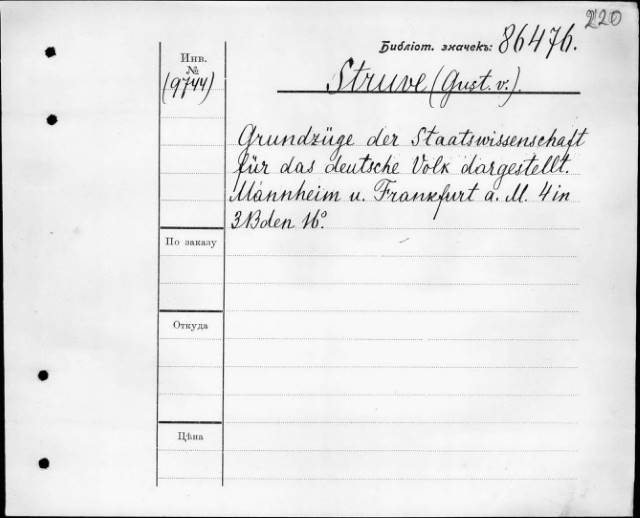 220
Библіот. значекъ: 86476.
Инв.
№
(9744)
Struve (Gust. v.).
Grundzüge der Staatswissenschaft
für das deutsche Volk dargestellt.
Mannheim u. Frankfurt a. M. 4 in
3 Bden 16°.
По заказу
Откуда
Цѣна